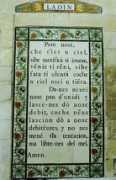 LADIN
Pere nost,
che t'ies n ciel,
sibe santificà ti inuem,
vënie ti rëni, sibe
fata ti ulentà coche
n ciel nsci n tiëra.
Da-nes ncuei
nost pan d'unidì
lasce-nes dò nosc
debic, coche nëus
lascion dò a nosc
debitëures y no nes
mené tla tentazion,
ma libre-nes dal mel.
Amen.